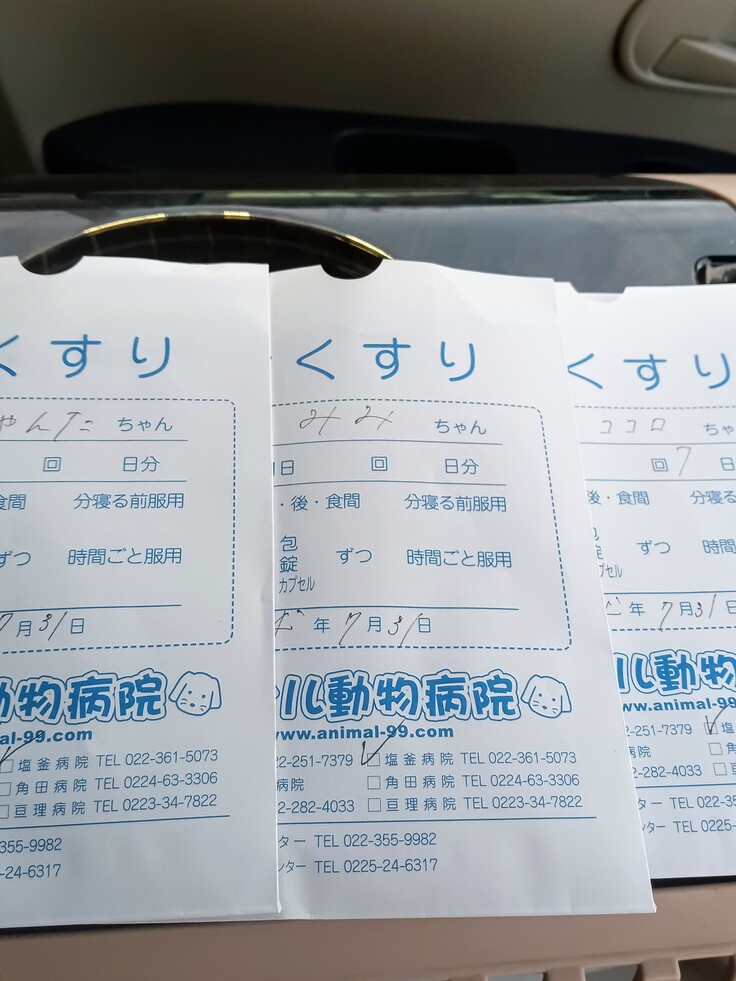 くすり
ゃんた ちゃん
回 日分
食間 分寝る前服用
ずつ 時間ごと服用
7月31日
動物病院
al-99.com
塩釜病院 TEL 022-361-5073
角田病院 TEL 0224-63-3306
亘理病院 TEL 0223-34-7822
355-9982
-24-6317
くすり
みみ ちゃん
日 回 日分
・後・食間 分寝る前服用
包
錠 ずつ 時間ごと服用
カプセル
年 7月31日
ル動物病院
www.animal-99.com
2-251-7379 塩釜病院 TEL 022-361-5073
病院 角田病院 TEL 0224-63-3306
2-282-4033 亘理病院 TEL 0223-34-7822
ター TEL 022-355-9982
ンター TEL 0225-24-6317
くすり
ココロ ちゃ
回 7 日
後・食間 分寝る
ずつ 時間
プセル
年 7月31日
ル動物
www.animal-99
-251-7379
病院
2-282-4033
ター TEL 022-35
ンター TEL 0225-